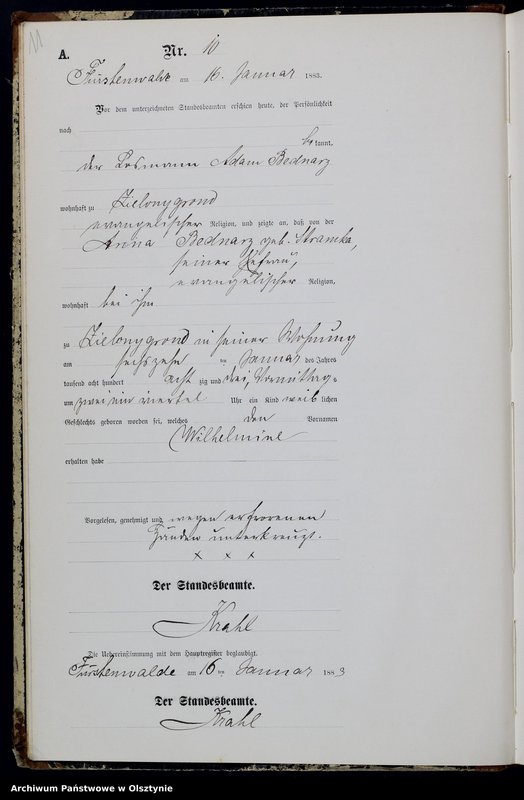 11
A.
Nr. 10
Fürstenwalde am 16. Januar 1883.
Vor dem unterzeichneten Standesbeamten erschien heute, der Persönlichkeit
nach
bekannt,
der Losmann Adam Bednarz
wohnhaft zu Zielonygrond
evangelischer Religion, und zeigte an, daß von der
Anna Bednarz geb. Stramka,
seiner Ehefrau,
evangelischer Religion,
wohnhaft bei ihm
zu Zielonygrond in seiner Wohnung
am sechszehn ten Januar des Jahres
tausend acht hundert acht zig und drei, Vormittags
um zwei ein viertel Uhr ein Kind weib lichen
Geschlechts geboren worden sei, welches den Vornamen
Wilhelmine
erhalten habe
Vorgelesen, genehmigt und wegen erfrorenen
Händen unterkreuzt.
x x x
Der Standesbeamte.
Krahl
Die Uebereinstimmung mit dem Hauptregister beglaubigt.
Fürstenwalde am 16 ten Januar 1883
Der Standesbeamte.
Krahl
Archiwum Państwowe w Olsztynie